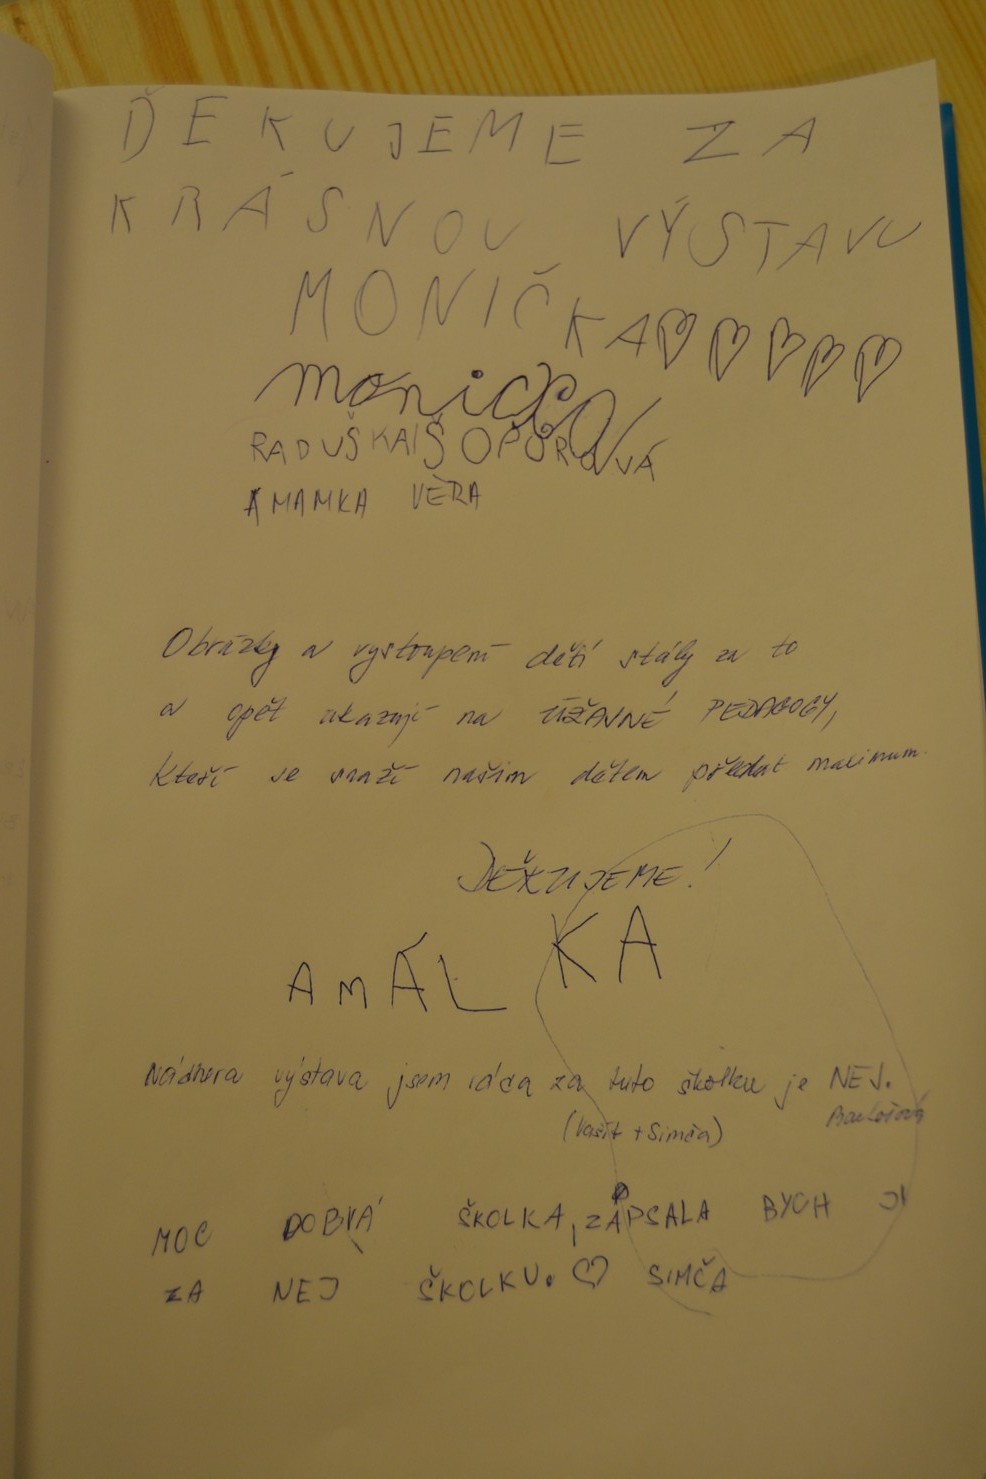 ĎEKUJEME ZA
KRÁSNOU VÝSTAVU
MONIČKA♡♡♡♡♡
monička
RADUŠKA ŠOPOROVÁ
A MAMKA VĚRA
Obrázky a vystoupení dětí stály za to
a opět ukazují na ÚŽASNÉ PEDAGOGY,
kteří se snaží našim dětem předat maximum.
DĚKUJEME!
AMÁLKA
Nádhera výstava jsem ráda za tuto školku je NEJ.
(Vašít + Simča)
MOC DOBRÁ ŠKOLKA, ZÁPSALA BYCH JI
ZA NEJ ŠKOLKU. ♡ SIMČA